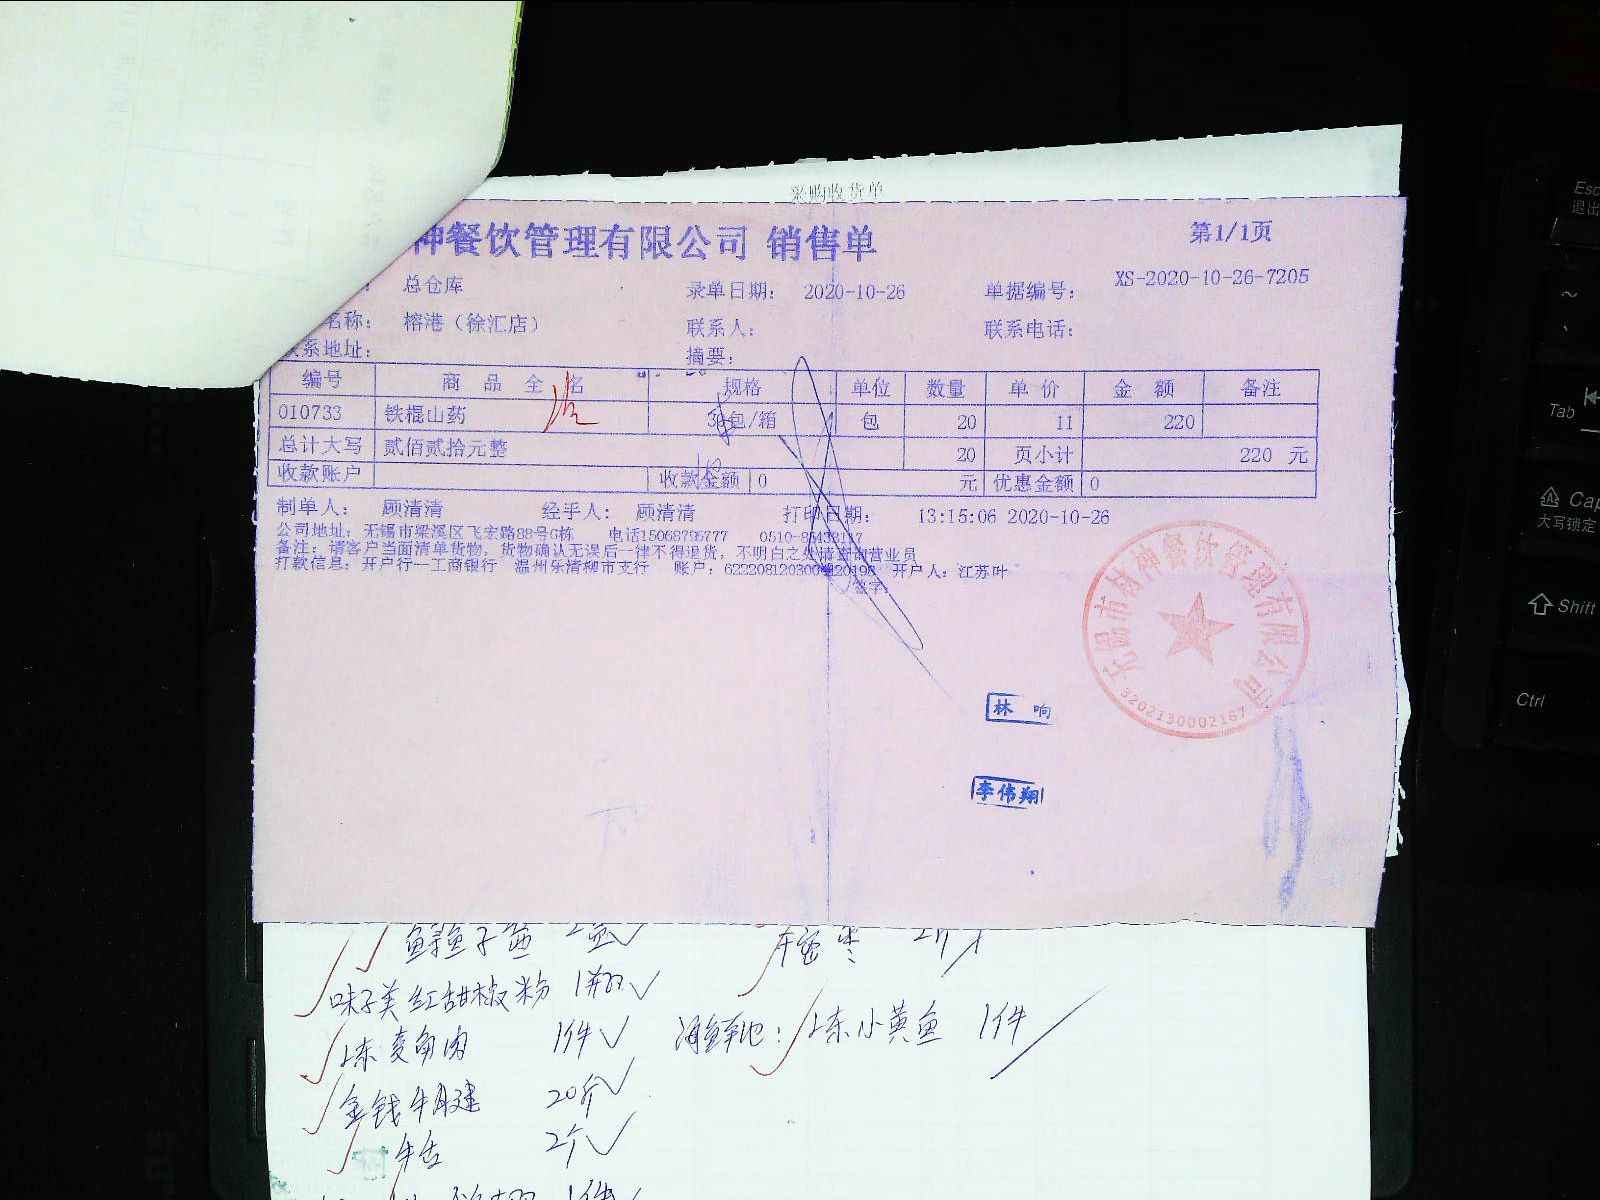 采购收货单
神餐饮管理有限公司 销售单 第1/1页
总仓库 录单日期: 2020-10-26 单据编号: XS-2020-10-26-7205
名称: 榕港（徐汇店） 联系人: 联系电话:
联系地址: 摘要:
编号 商品全名 规格 单位 数量 单价 金额 备注
010733 铁棍山药 包/箱 包 20 11 220
总计大写 贰佰贰拾元整 20 页小计 220 元
收款账户 收款金额 0 元 优惠金额 0
制单人: 顾清清 经手人: 顾清清 打印日期: 13:15:06 2020-10-26
公司地址: 无锡市梁溪区飞宏路88号G栋 电话15068795777
备注: 请客户当面清单货物, 货物确认无误后一律不得退货, 不明白之处请咨询营业员
打款信息: 开户行一工商银行 温州乐清柳市支行 账户: 开户人: 江苏叶
签字:
无锡市材神餐饮管理有限公司
3202130002167
林响
李伟翔
2斤
味子美红甜椒粉 1瓶
1件 海鲜池: 上东小黄鱼 1件
金钱牛腱 20斤
牛舌 2个
1件
Esc
退出
~
Tab
Cap
大写锁定
Shift
Ctrl